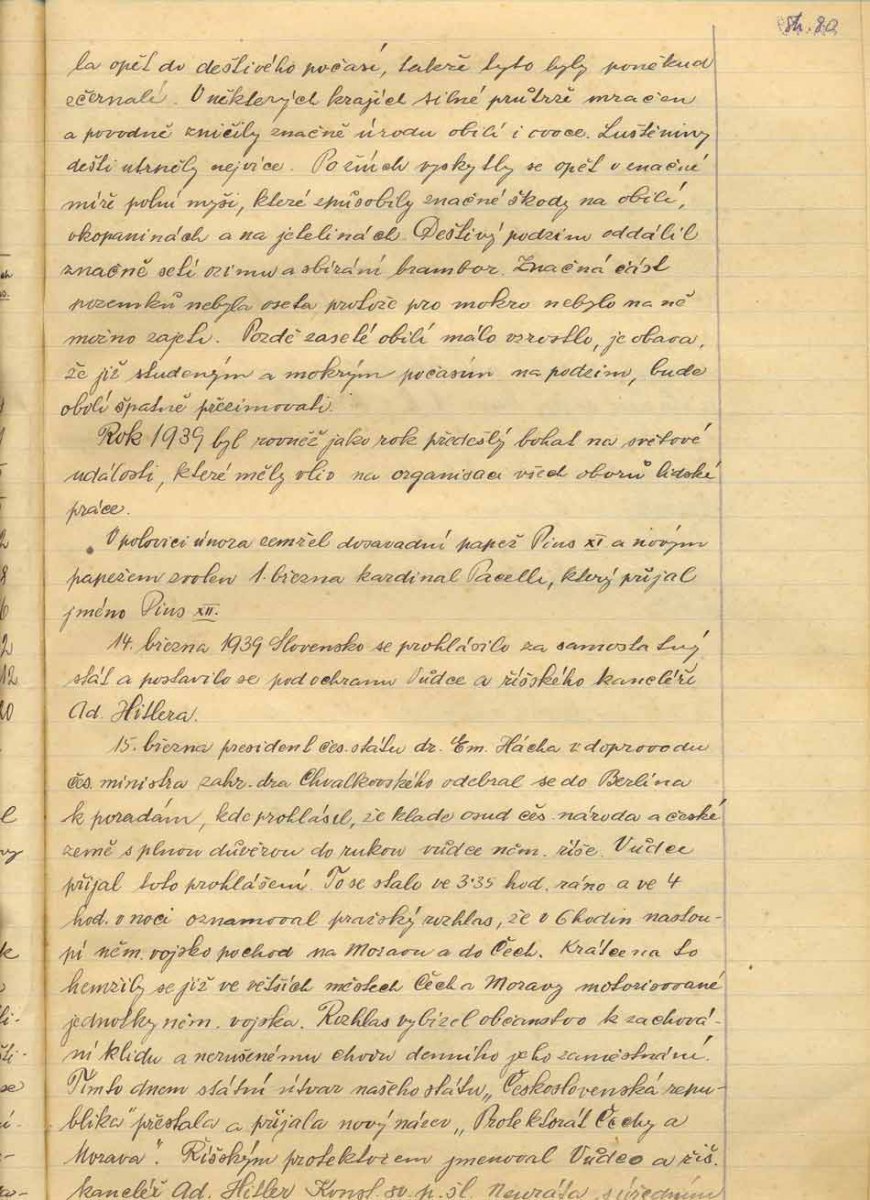 str. 80
la opět do deštivého počasí, takže tyto byly poněkud
zčernalé. V některých krajích silné průtrže mračen
a povodně zničily značně úrodu obilí i ovoce. Luštěniny
dešti utrpěly nejvíce. Po žních vyskytly se opět v značné
míře polní myši, které způsobily značné škody na obilí,
okopaninách a na jetelinách. Deštivý podzim oddálil
značně setí ozimu a sbírání brambor. Značná část
pozemků nebyla oseta protože pro mokro nebylo na ně
možno zajeti. Pozdě zaseté obilí málo vzrostlo, je obava,
že již studeným a mokrým počasím na podzim, bude
obilí špatně přezimovati.
Rok 1939 byl rovněž jako rok předešlý bohat na světové
události, které měly vliv na organisaci všech oborů lidské
práce.
V polovici února zemřel dosavadní papež Pius XI a novým
papežem zvolen 1. března kardinal Pacelli, který přijal
jméno Pius XII.
14. března 1939 Slovensko se prohlásilo za samostatný
stát a postavilo se pod ochranu Vůdce a říšského kancléře
Ad. Hitlera.
15. března president čes. státu dr. Em. Hácha v doprovodu
čs. ministra zahr. dra Chvalkovského odebral se do Berlína
k poradám, kde prohlásil, že klade osud čes. národa a české
země s plnou důvěrou do rukou vůdce něm. říše. Vůdce
přijal toto prohlášení. To se stalo ve 3.35 hod. ráno a ve 4
hod. v noci oznamoval pražský rozhlas, že v 6 hodin nastou-
pí něm. vojsko pochod na Moravu a do Čech. Krátce na to
hemžily se již ve větších městech Čech a Moravy motorisované
jednotky něm. vojska. Rozhlas vybízel občanstvo k zachová-
ní klidu a nerušenému chodu denního jeho zaměstnání.
Tímto dnem státní útvar našeho státu „Československá repu-
blika" přestala a přijala nový název „Protektorát Čechy a
Morava". Říšským protektorem jmenoval Vůdce a říš.
kancléř Ad. Hitler Konst. sv. p. šl. Neuratha, s úředním